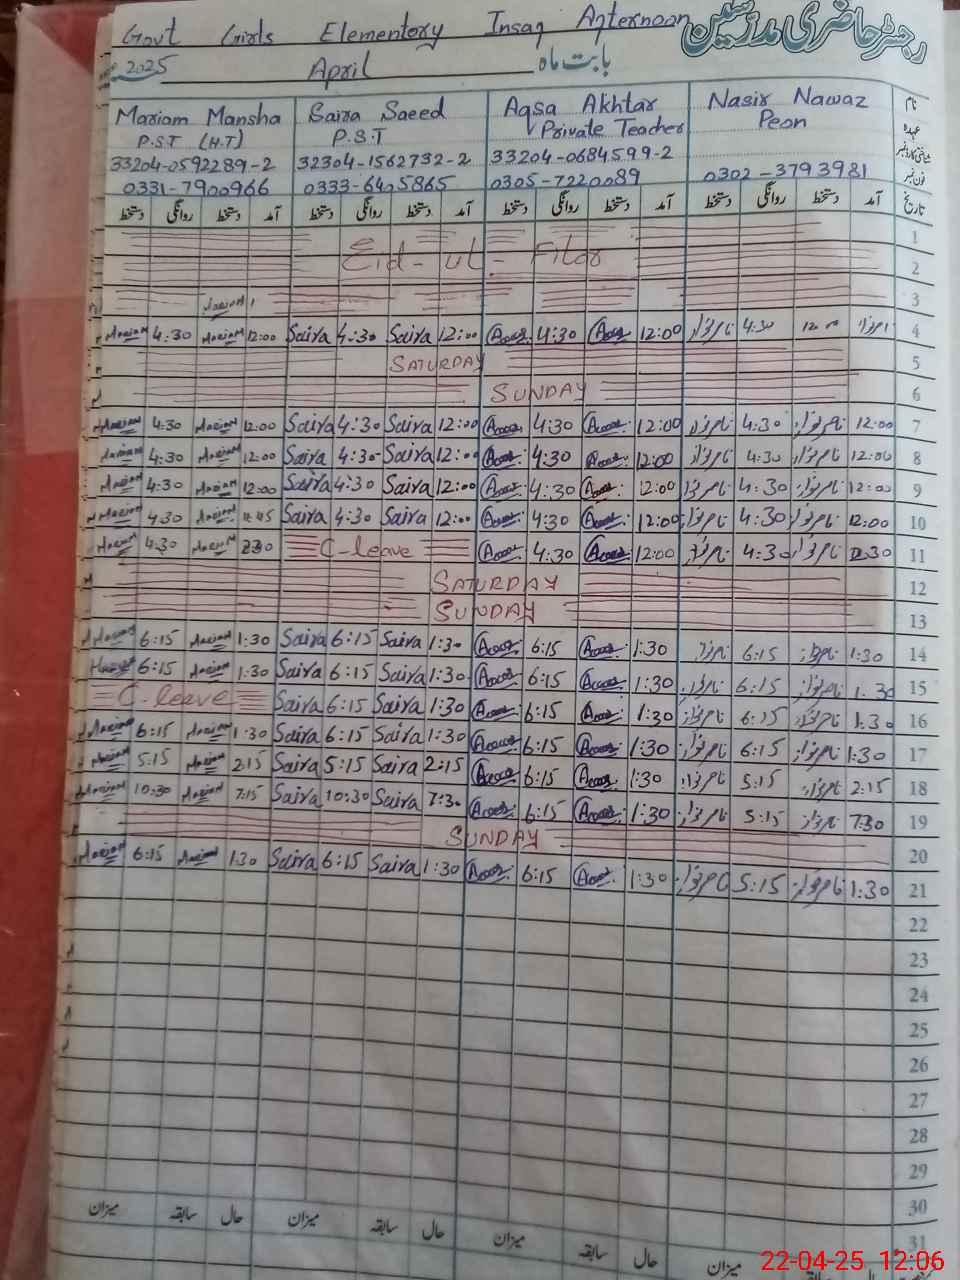 Govt Girls Elementory Insaf Afternoon رجسٹر حاضری مدرسین
2025 April بابت ماہ
Mariam Mansha Saira Saeed Aqsa Akhtar Nasir Nawaz نام
P.S.T (H.T) P.S.T Private Teacher Peon عہدہ
33204-0592289-2 32304-1562732-2 33204-0684599-2 شناختی کارڈ نمبر
0331-7900966 0333-6405865 0305-7220089 0302-3793981 فون نمبر
دستخط روانگی دستخط آمد دستخط روانگی دستخط آمد دستخط روانگی دستخط آمد دستخط روانگی دستخط آمد تاریخ
1
Eid-ul-Fitar 2
Mariam 3
Mariam 4:30 Mariam 12:00 Saira 4:30 Saira 12:00 4:30 12:00 ناصر نواز 4:30 12:00 4
SATURDAY 5
SUNDAY 6
Mariam 4:30 Mariam 12:00 Saira 4:30 Saira 12:00 4:30 12:00 ناصر نواز 4:30 ناصر نواز 12:00 7
Mariam 4:30 Mariam 12:00 Saira 4:30 Saira 12:00 4:30 12:00 ناصر نواز 4:30 ناصر نواز 12:00 8
Mariam 4:30 Mariam 12:00 Saira 4:30 Saira 12:00 4:30 12:00 ناصر نواز 4:30 ناصر نواز 12:00 9
Mariam 4:30 Mariam Saira 4:30 Saira 12:00 4:30 12:00 ناصر نواز 4:30 ناصر نواز 12:00 10
Mariam 4:30 Mariam C-leave 4:30 12:00 ناصر نواز 4:30 ناصر نواز 11
SATURDAY 12
SUNDAY 13
Mariam 6:15 Mariam 1:30 Saira 6:15 Saira 1:30 6:15 1:30 ناصر نواز 6:15 ناصر نواز 1:30 14
Mariam 6:15 Mariam 1:30 Saira 6:15 Saira 1:30 6:15 1:30 ناصر نواز 6:15 ناصر نواز 1:30 15
C-leave Saira 6:15 Saira 1:30 6:15 1:30 ناصر نواز 6:15 ناصر نواز 1:30 16
Mariam 6:15 Mariam 1:30 Saira 6:15 Saira 1:30 6:15 1:30 ناصر نواز 6:15 ناصر نواز 1:30 17
Mariam 5:15 Mariam 2:15 Saira 5:15 Saira 2:15 6:15 1:30 ناصر نواز 5:15 ناصر نواز 2:15 18
Mariam 10:30 Mariam 7:15 Saira 10:30 Saira 7:30 6:15 1:30 ناصر نواز 5:15 ناصر نواز 7:30 19
SUNDAY 20
Mariam 6:15 Mariam 1:30 Saira 6:15 Saira 1:30 6:15 1:30 ناصر نواز 5:15 ناصر نواز 1:30 21
22
23
24
25
26
27
28
29
30
میزان سابقہ حال میزان سابقہ حال میزان سابقہ حال میزان سابقہ حال 31
22-04-25 12:06